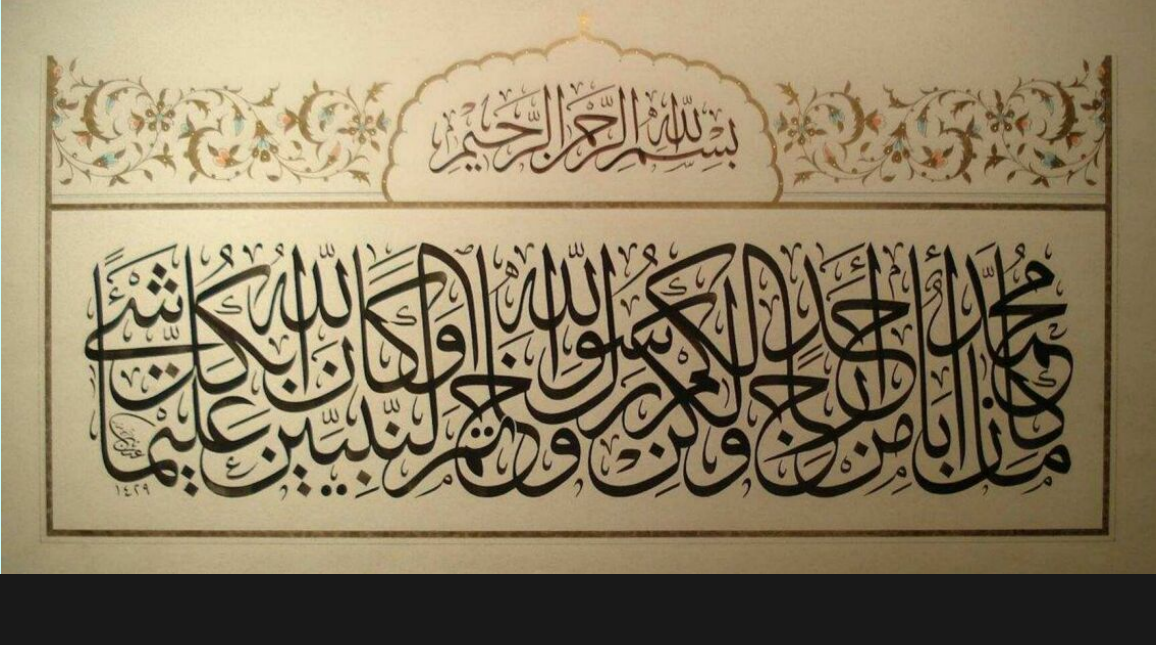 بِسْمِ اللهِ الرَّحْمٰنِ الرَّحِيْمِ
مَا كَانَ مُحَمَّدٌ أَبَا أَحَدٍ مِنْ رِجَالِكُمْ وَلَكِنْ رَسُولَ اللهِ وَخَاتَمَ النَّبِيِّينَ وَكَانَ اللهُ بِكُلِّ شَيْءٍ عَلِيمًا
١٤٢٩